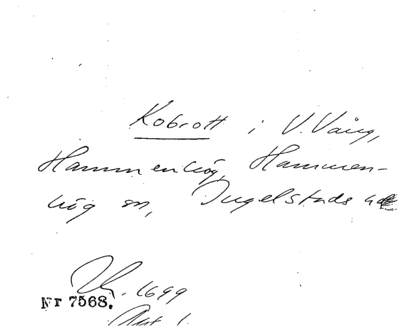 Kobrott i V. Vång,
Hammenhög, Hammen-
hög sn, Ingelstads hd
1699
Nr 7568.
Akt 1.